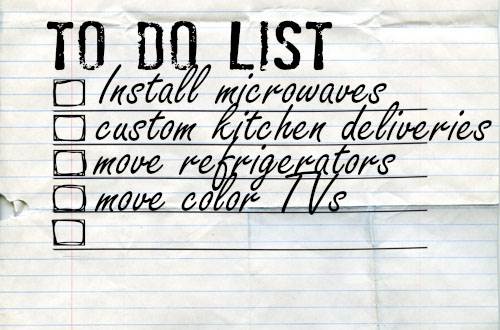 TO DO LIST
Install microwaves
custom kitchen deliveries
move refrigerators
move color TVs